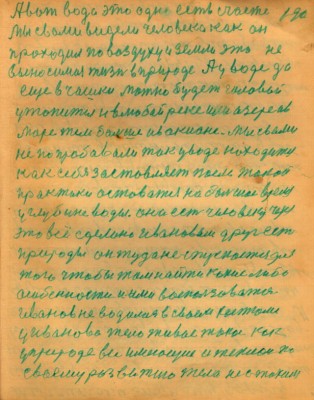 А вот вода это одно есть счасте 190
Мы с вами видели человека как он
проходил по воздуху и земли это не
выносимая жизнь в природе А у воде да
еще в чашки можно будет человек
утопится и в любой реке или азере ав
море тем более и в акионе. Мы с вами
не попробавали так у воде находится
как себя заставляет после такой
практики остоватся на большое время
у глубине воды. она ест человек
это всё сделано Ивановым друг ест
природы он туда не спускается для
того чтобы там найти какие либо
особенности и ими воспользоватся.
Иванов не водилия в своем костюме
у Иванова тело живае такое как
у природе все имеющие и техниси по
своему развитию тела не с таким